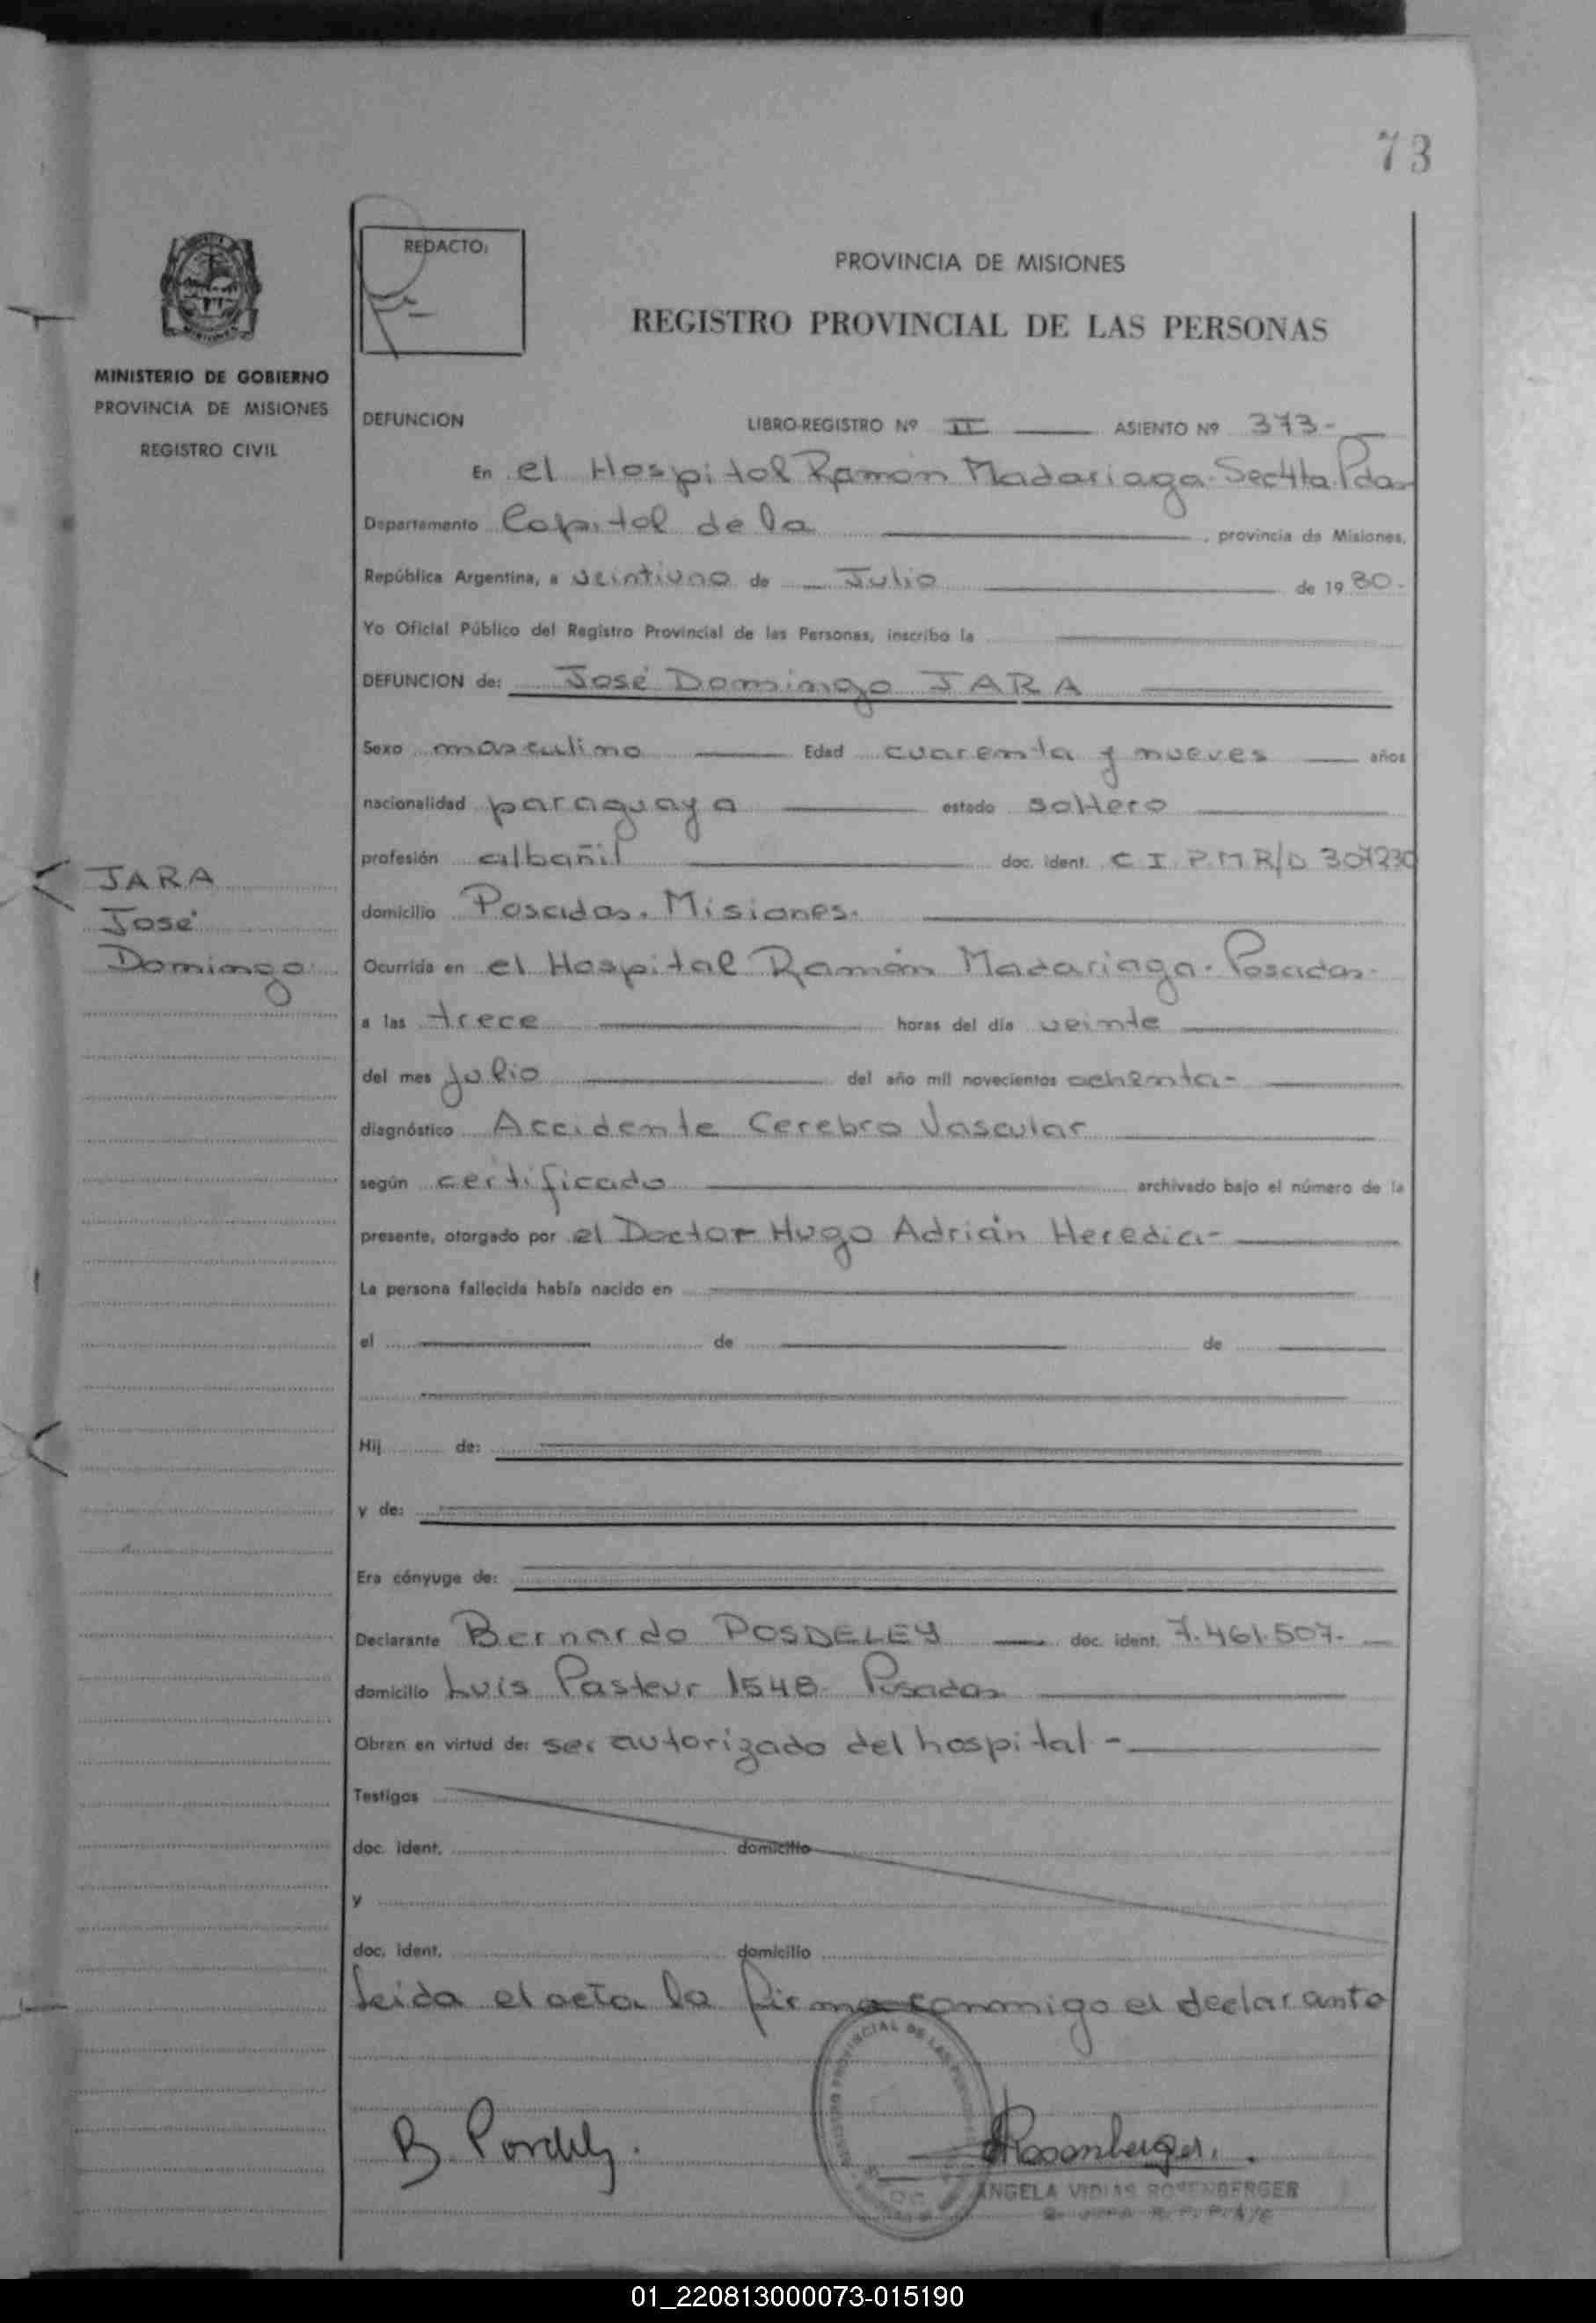 73
REDACTO:
PROVINCIA DE MISIONES
REGISTRO PROVINCIAL DE LAS PERSONAS
MINISTERIO DE GOBIERNO
PROVINCIA DE MISIONES
REGISTRO CIVIL
DEFUNCION LIBRO-REGISTRO Nº II ASIENTO Nº 373-
En el Hospital Ramón Madariaga-Sec4ta.Pdas
Departamento Capital de la , provincia de Misiones,
República Argentina, a veintiuno de Julio de 19 80-
Yo Oficial Público del Registro Provincial de las Personas, inscribo la
DEFUNCION de: José Domingo JARA
Sexo masculino Edad cuarenta y nueves años
nacionalidad paraguaya estado soltero
profesión albañil doc. ident. C I P.M.R/D 307230
JARA
José
Domingo
domicilio Posadas. Misiones.
Ocurrida en el Hospital Ramón Madariaga- Posadas-
a las trece horas del día veinte
del mes julio del año mil novecientos ochenta-
diagnóstico Accidente Cerebro Vascular
según certificado archivado bajo el número de la
presente, otorgado por el Doctor Hugo Adrián Heredia-
La persona fallecida había nacido en
el de de
Hij de:
y de:
Era cónyuge de:
Declarante Bernardo POSDELEY doc. ident. 7.461.507-
domicilio Luis Pasteur 1548- Posadas
Obran en virtud de: ser autorizado del hospital -
Testigos
doc. ident. domicilio
y
doc. ident. domicilio
Leida el acta la firma conmigo el declarante
REGISTRO PROVINCIAL DE LAS
B. Posdeley.
Rosenberger.
ANGELA VIDIAS ROSENBERGER
01_220813000073-015190